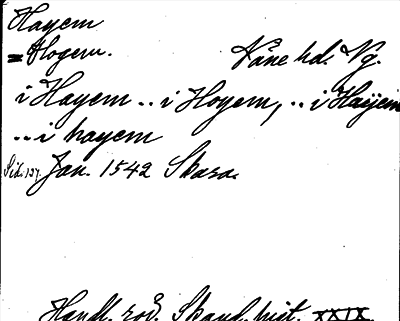 Hayem
= Hogem.
Kåne hd. Vg.
i Hayem .. i Hoyem, .. i Haÿem
.. i hayem
Sid. 137. Jan. 1542 Skara.
Handl. rör. Skand. hist. XXIX.